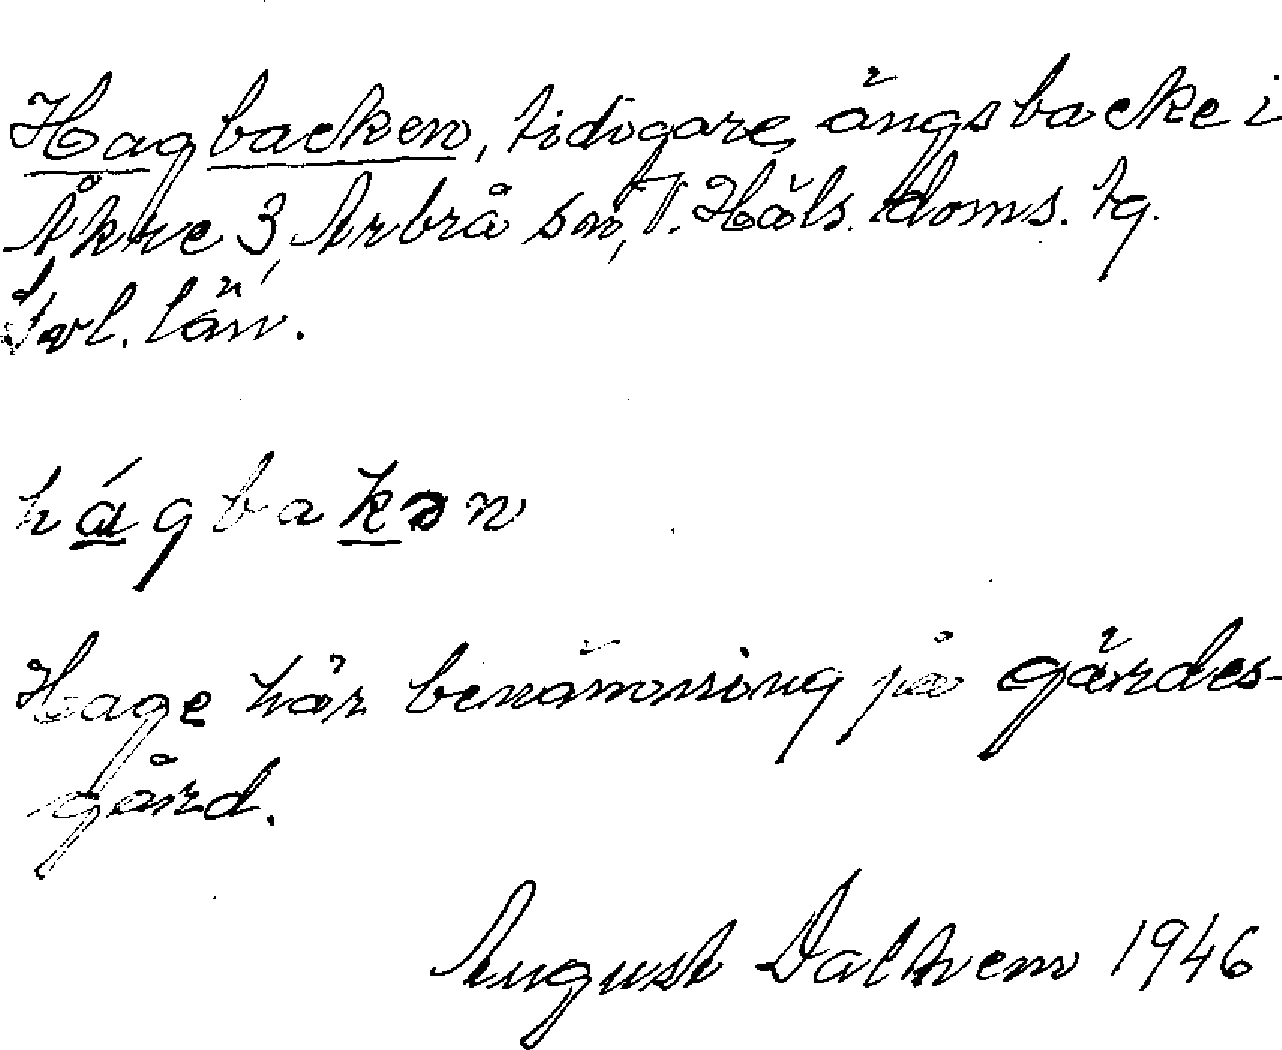 Hagbacken, tidigare ängsbacke i
Åkre 3, Arbrå sn, V. Häls. doms. tg.
Gvl. län.
hágbakən
Hage här benämning på gärdes-
gård.
August Dalhem 1946